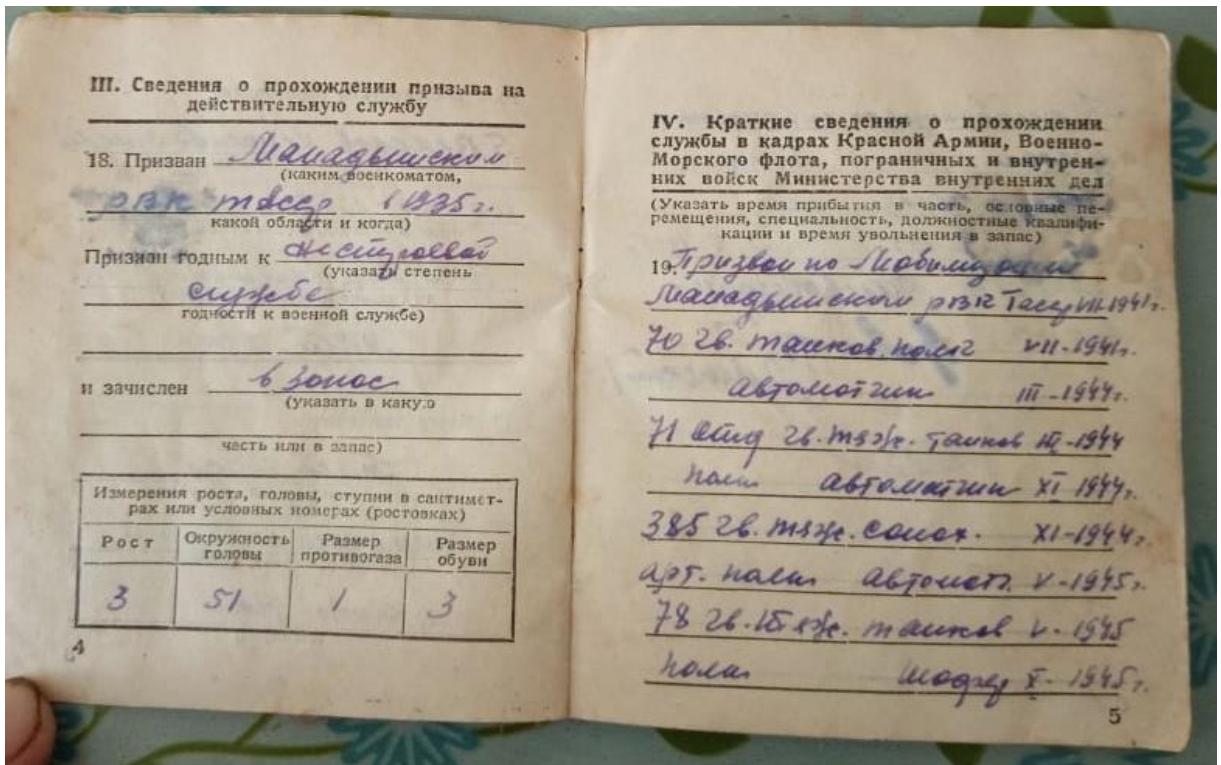 III. Сведения о прохождении призыва на
действительную службу
18. Призван Мамадышским
(каким военкоматом,
рвк тасср в 1935 г.
какой области и когда)
Признан годным к нестроевой
(указать степень
службе
годности к военной службе)
и зачислен в запас
(указать в какую
часть или в запас)
Измерения роста, головы, ступни в сантимет-
рах или условных номерах (ростовках)
Рост Окружность головы Размер противогаза Размер обуви
3 51 1 3
4
IV. Краткие сведения о прохождении
службы в кадрах Красной Армии, Военно-
Морского флота, пограничных и внутрен-
них войск Министерства внутренних дел
(Указать время прибытия в часть, основные пе-
ремещения, специальность, должностные квалифи-
кации и время увольнения в запас)
19. Призван по Мобилизации
Мамадышским рвк Тасср VII-1941г.
70 гв. танков. полк VII-1941г.
автоматчик III-1944г.
71 отд гв. тяж. танков III-1944
полк автоматчик XI 1944г.
385 гв. тяж. самох. XI-1944г.
арт. полк автомат. V-1945г.
78 гв. тяж. танков V-1945
полк шофер X-1945г.
5